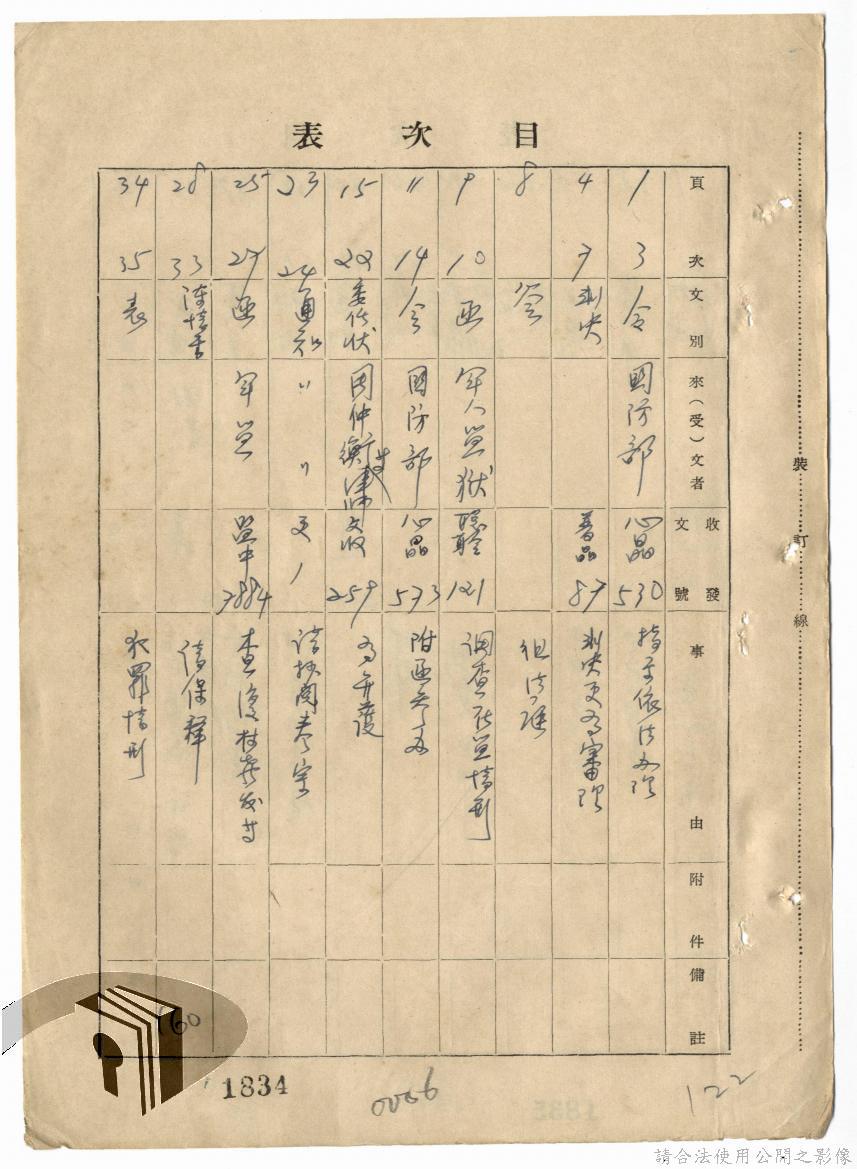 目次表
頁次 文別 來(受)文者 收發文號 事由 附件 備註
1 3 令 國防部 心晶 530 指示依法辦理
4 7 判決 普晶 87 判決更為審理
8 簽 組法庭
9 10 函 軍人監獄 121 調查在監情形
11 14 令 國防部 心晶 573 附函參辦
15 22 委任狀 周仲衡律師 文收 259 為弁護
23 24 通知 〃 〃 更 1 請抄閱卷宗
25 27 函 軍監 監中 7884 查復
28 33 陳情書 請保釋
34 35 表 犯罪情形
裝訂線
60
1834
0006
122
請合法使用公開之影像